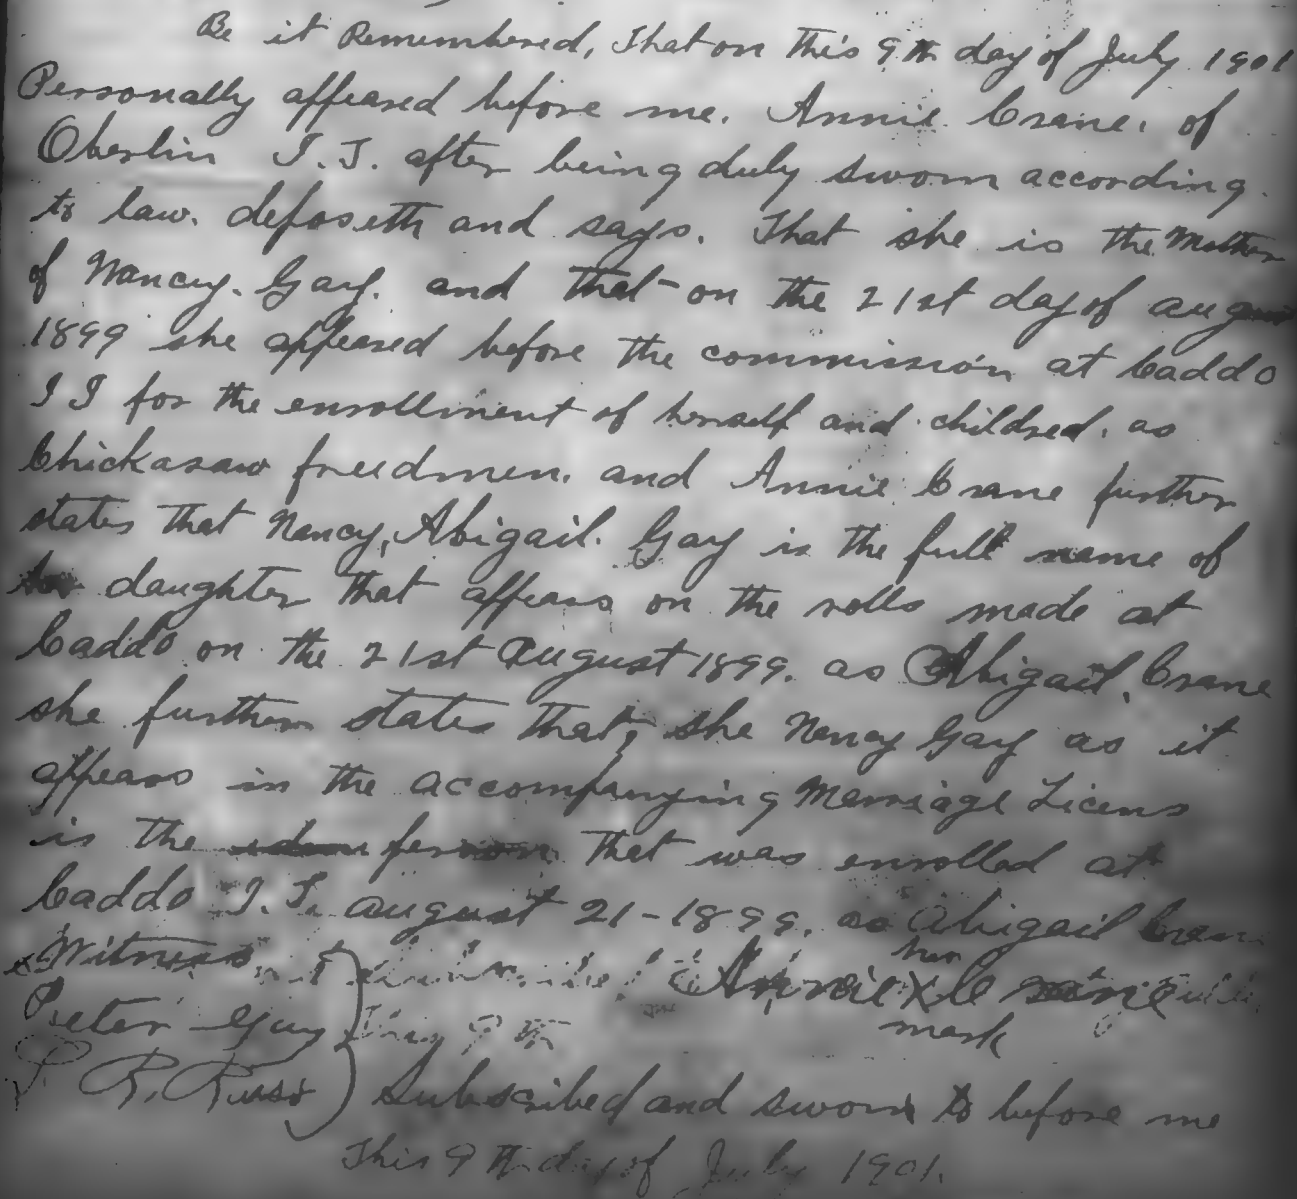 Be it Remembered, That on this 9th day of July 1901
Personally appeared before me. Annie Crane. of
Oberlin I.T. after being duly sworn according
to law. deposeth and says. That she is the Mother
of Nancy. Gay. and that on the 21st day of august
1899 she appeared before the commission at Caddo
I T for the enrollment of herself and children. as
Chickasaw freedmen. and Annie Crane further
states that Nancy, Abigail. Gay is the full name of
her daughter that appears on the rolls made at
Caddo on the 21st August 1899. as Abigail. Crane
she further states that, she Nancy Gay as it
appears in the accompanying Marriage Licens
is the person that was enrolled at
Caddo I.T. august 21-1899. as Abigail Crane
Witness her
Annie X Crane
Peter Gay mark
R. Russ Subscribed and sworn to before me
This 9th day of July 1901.